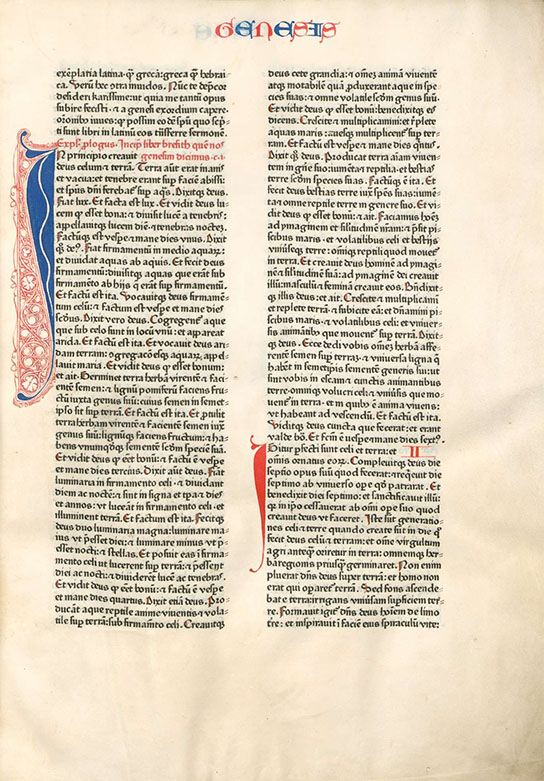 GENESIS
exēplaria latina: q̄ greca: greca q̄ hebrai-
ca. Verū hec cōtra inuidos. Nūc te dep̄cor
desideri karissime: ut quia me tantū opus
subire fecisti: ⁊ a genesi exordium capere:
orōnibꝰ iuues: quo possim eodē spū quo scp̄-
ti sunt libri in latinū eos trāsferre sermonē.
Expl̄. prologus. Incip̄ liber bresith quē nos
IN principio creauit genesim dicimus. c. i.
deus celum et terrā. Terra aut̄ erat inanis
et vacua: et tenebre erant sup̄ faciē abissi:
et spūs dn̄i ferebat᷑ sup̄ aq̄s. Dixitqꝫ deus.
Fiat lux. Et facta est lux. Et vidit deus lu-
cem ꝙ esset bona: et diuisit lucē a tenebris:
appellauitqꝫ lucem diē ⁊ tenebras noctem.
Factūqꝫ est vespe ⁊ mane dies vnus. Dixit
Fiat firmamentū in medio aquaꝝ:
et diuidat aquas ab aquis. Et fecit deus
firmamentū: diuisitqꝫ aquas que erāt sub
firmamēto ab hijs q̄ erāt sup̄ firmamentū.
Et factū est ita. Vocauitqꝫ deus firmamē-
tum celū: ⁊ factum est vespe et mane dies
scd̄us. Dixit vero deus. Cōgregent᷑ aque
que sub celo sunt in locū vnū: et appareat
arida. Et factū est ita. Et vocauit deus ari-
dam terram: cōgregacōesqꝫ aquaꝝ appel-
lauit maria. Et vidit deus ꝙ esset bonum:
et ait. Germinet terra herbā virentē ⁊ faciē-
tē semen: ⁊ lignū pomiferū faciens fruc-
tū iuxta genus suū: cuius semen in semet-
ipso sit sup̄ terrā. Et factū est ita. Et ꝓtulit
terra herbam virentē ⁊ facientē semen iux̄
genus suū: lignūqꝫ faciens fructum: ⁊ ha-
bens vnumqdqꝫ sementē scd̄m speciē suā.
Et vidit deus ꝙ esset bonū: ⁊ factū ē vespe
et mane dies tercius. Dixit aūt deus. Fiāt
luminaria in firmamento celi: ⁊ diuidant
diem ac noctē: ⁊ sint in signa et tp̄a ⁊ dies
et annos: vt luceāt in firmamento celi ⁊
illuminent terrā. Et factum est ita. Fecitqꝫ
deus duo luminaria magna: luminare ma-
ius vt p̄esset diei: ⁊ luminare minus vt p̄-
esset nocti: ⁊ stellas. Et posuit eas ī firma-
mento celi ut lucerent sup̄ terrā: ⁊ p̄essent
diei ac nocti: ⁊ diuiderēt lucē ac tenebras.
Et vidit deus ꝙ eēt bonū: ⁊ factū ē vespe
et mane dies quartus. Dixit etiā deus. Pro-
ducāt aque reptile anime viuentis ⁊ vola-
tile sup̄ terrā: sub firmamēto celi. Creauitqꝫ
deus cete grandia: ⁊ om̄em animā viuentē
atqꝫ motabilē quā ꝓduxerant aque in spe-
cies suas: ⁊ omne volatile scd̄m genus suū.
Et vidit deus ꝙ esset bonū: benedixitqꝫ eis
dicens. Crescite ⁊ multiplicamini: et replete
aquas maris: auesqꝫ multiplicent᷑ sup̄ ter-
ram. Et factū est vespe ⁊ mane dies quintus.
Dixit quoqꝫ deus. Producat terra aīam viuen-
tem in genere suo: iumēta ⁊ reptilia ⁊ bestias
terre scd̄m species suas. Factūqꝫ ē ita. Et
fecit deus bestias terre iux̄ species suas: iumē-
ta ⁊ omne reptile terre in genere suo. Et vi-
dit deus ꝙ esset bonū: ⁊ ait. Faciamus hoīem
ad ymaginem ⁊ similitudinē nr̄am: ⁊ p̄sit pi-
scibus maris: et volatilibus celi et bestijs
vniuerseqꝫ terre: omniqꝫ reptili quod mouet᷑
in terra. Et creauit deus hominē ad ymagi-
nē ⁊ similitudinē suā: ad ymaginē dei creauit
illū: masculū ⁊ feminā creauit eos. Bn̄dixit-
qꝫ illis deus: et ait. Crescite ⁊ multiplicamini
et replete terrā ⁊ subicite eā: et dn̄amini pi-
scibus maris: et volatilibus celi: et vniuer-
sis animātibus que mouent᷑ sup̄ terrā. Dixit-
qꝫ deus. Ecce dedi vobis om̄em herbā affe-
rentē semen sup̄ terrā: ⁊ vniuersa ligna que
habēt in semetipsis sementē generis sui: ut
sint vobis in escam ⁊ cunctis animantibus
terre: omniqꝫ volucri celi ⁊ vniuersis que mo-
uent᷑ in terra: et in quibus ē anima viuens:
vt habeant ad vescendū. Et factū est ita.
Viditqꝫ deus cuncta que fecerat: et erant
valde bona. Et factū ē vespe ⁊ mane dies sext᷒.
IGitur perfecti sunt celi et terra: et II
omnis ornatus eoꝝ. Compleuitqꝫ deus die
septimo opus suū quod fecerat: ⁊ requieuit die
septimo ab vniuerso opere quod patrarat. Et
benedixit diei septimo: et sanctificauit illū:
quia in ipso cessauerat ab omni opere suo quod
creauit deus vt faceret. Iste sunt generatio-
nes celi ⁊ terre quando create sūt in die quo
fecit deus celū ⁊ terram: et omne virgultum
agri anteq̄ oriretur in terra: omnemqꝫ her-
bā regionis priusq̄ germinaret. Non enim
pluerat dn̄s deus super terrā: et homo non
erat qui operaret᷑ terrā. Sed fons ascende-
bat e terra: irrigans vniuersam superficiem ter-
re. Formauit igit᷑ dn̄s deus hoīem de limo
terre: et inspirauit ī faciē eius spiraculū vite: